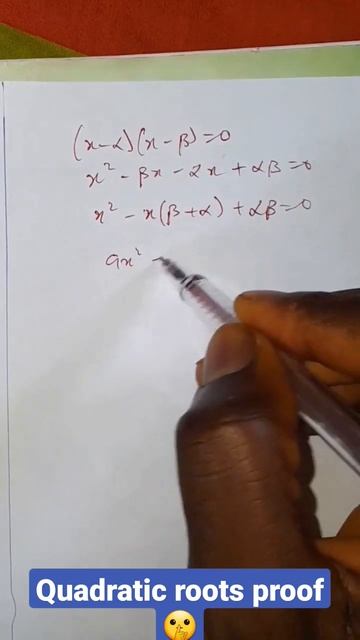 (x-α)(x-β)=0
x² - βx - αx + αβ = 0
x² - x(β+α) + αβ = 0
ax² -
Quadratic roots proof
🤫